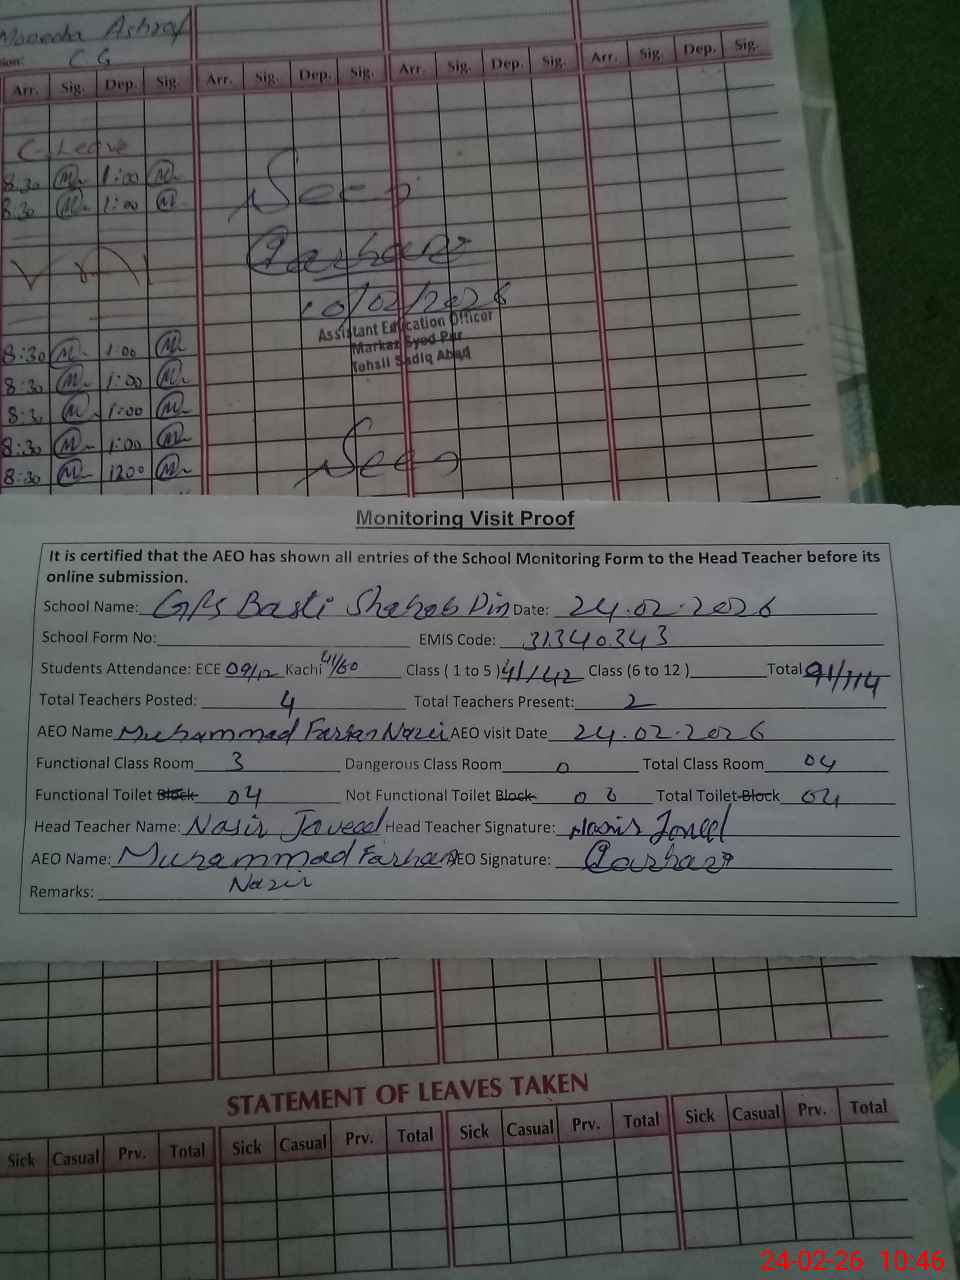 Ashraf
C G
Arr. Sig. Dep. Sig. Arr. Sig. Dep. Sig. Arr. Sig. Dep. Sig. Arr. Sig. Dep. Sig.
C-Leave
8:30 M 1:00 M
8:30 M 1:00 M
Seen
10/02/2026
Assistant Education Officer
Markaz Syed Pur
Tehsil Sadiq Abad
8:30 M 1:00 M
8:30 M 1:00 M
8:30 M 1:00 M
8:30 M 1:00 M
8:30 M 1200 M
Seen
Monitoring Visit Proof
It is certified that the AEO has shown all entries of the School Monitoring Form to the Head Teacher before its
online submission.
School Name: GPS Basti Shahab Din Date: 24.02.2026
School Form No: EMIS Code: 31340343
Students Attendance: ECE 09/12 Kachi 41/60 Class ( 1 to 5 ) 41/42 Class (6 to 12 ) Total 91/114
Total Teachers Posted: 4 Total Teachers Present: 2
AEO Name Muhammad Farhan Nazir AEO visit Date 24.02.2026
Functional Class Room 3 Dangerous Class Room 0 Total Class Room 04
Functional Toilet Block 04 Not Functional Toilet Block 00 Total Toilet Block 04
Head Teacher Name: Nasir Javeed Head Teacher Signature: Nasir Javed
AEO Name: Muhammad Farhan AEO Signature: Farhan
Nazir
Remarks:
STATEMENT OF LEAVES TAKEN
Sick Casual Prv. Total Sick Casual Prv. Total Sick Casual Prv. Total Sick Casual Prv. Total
24-02-26 10:46